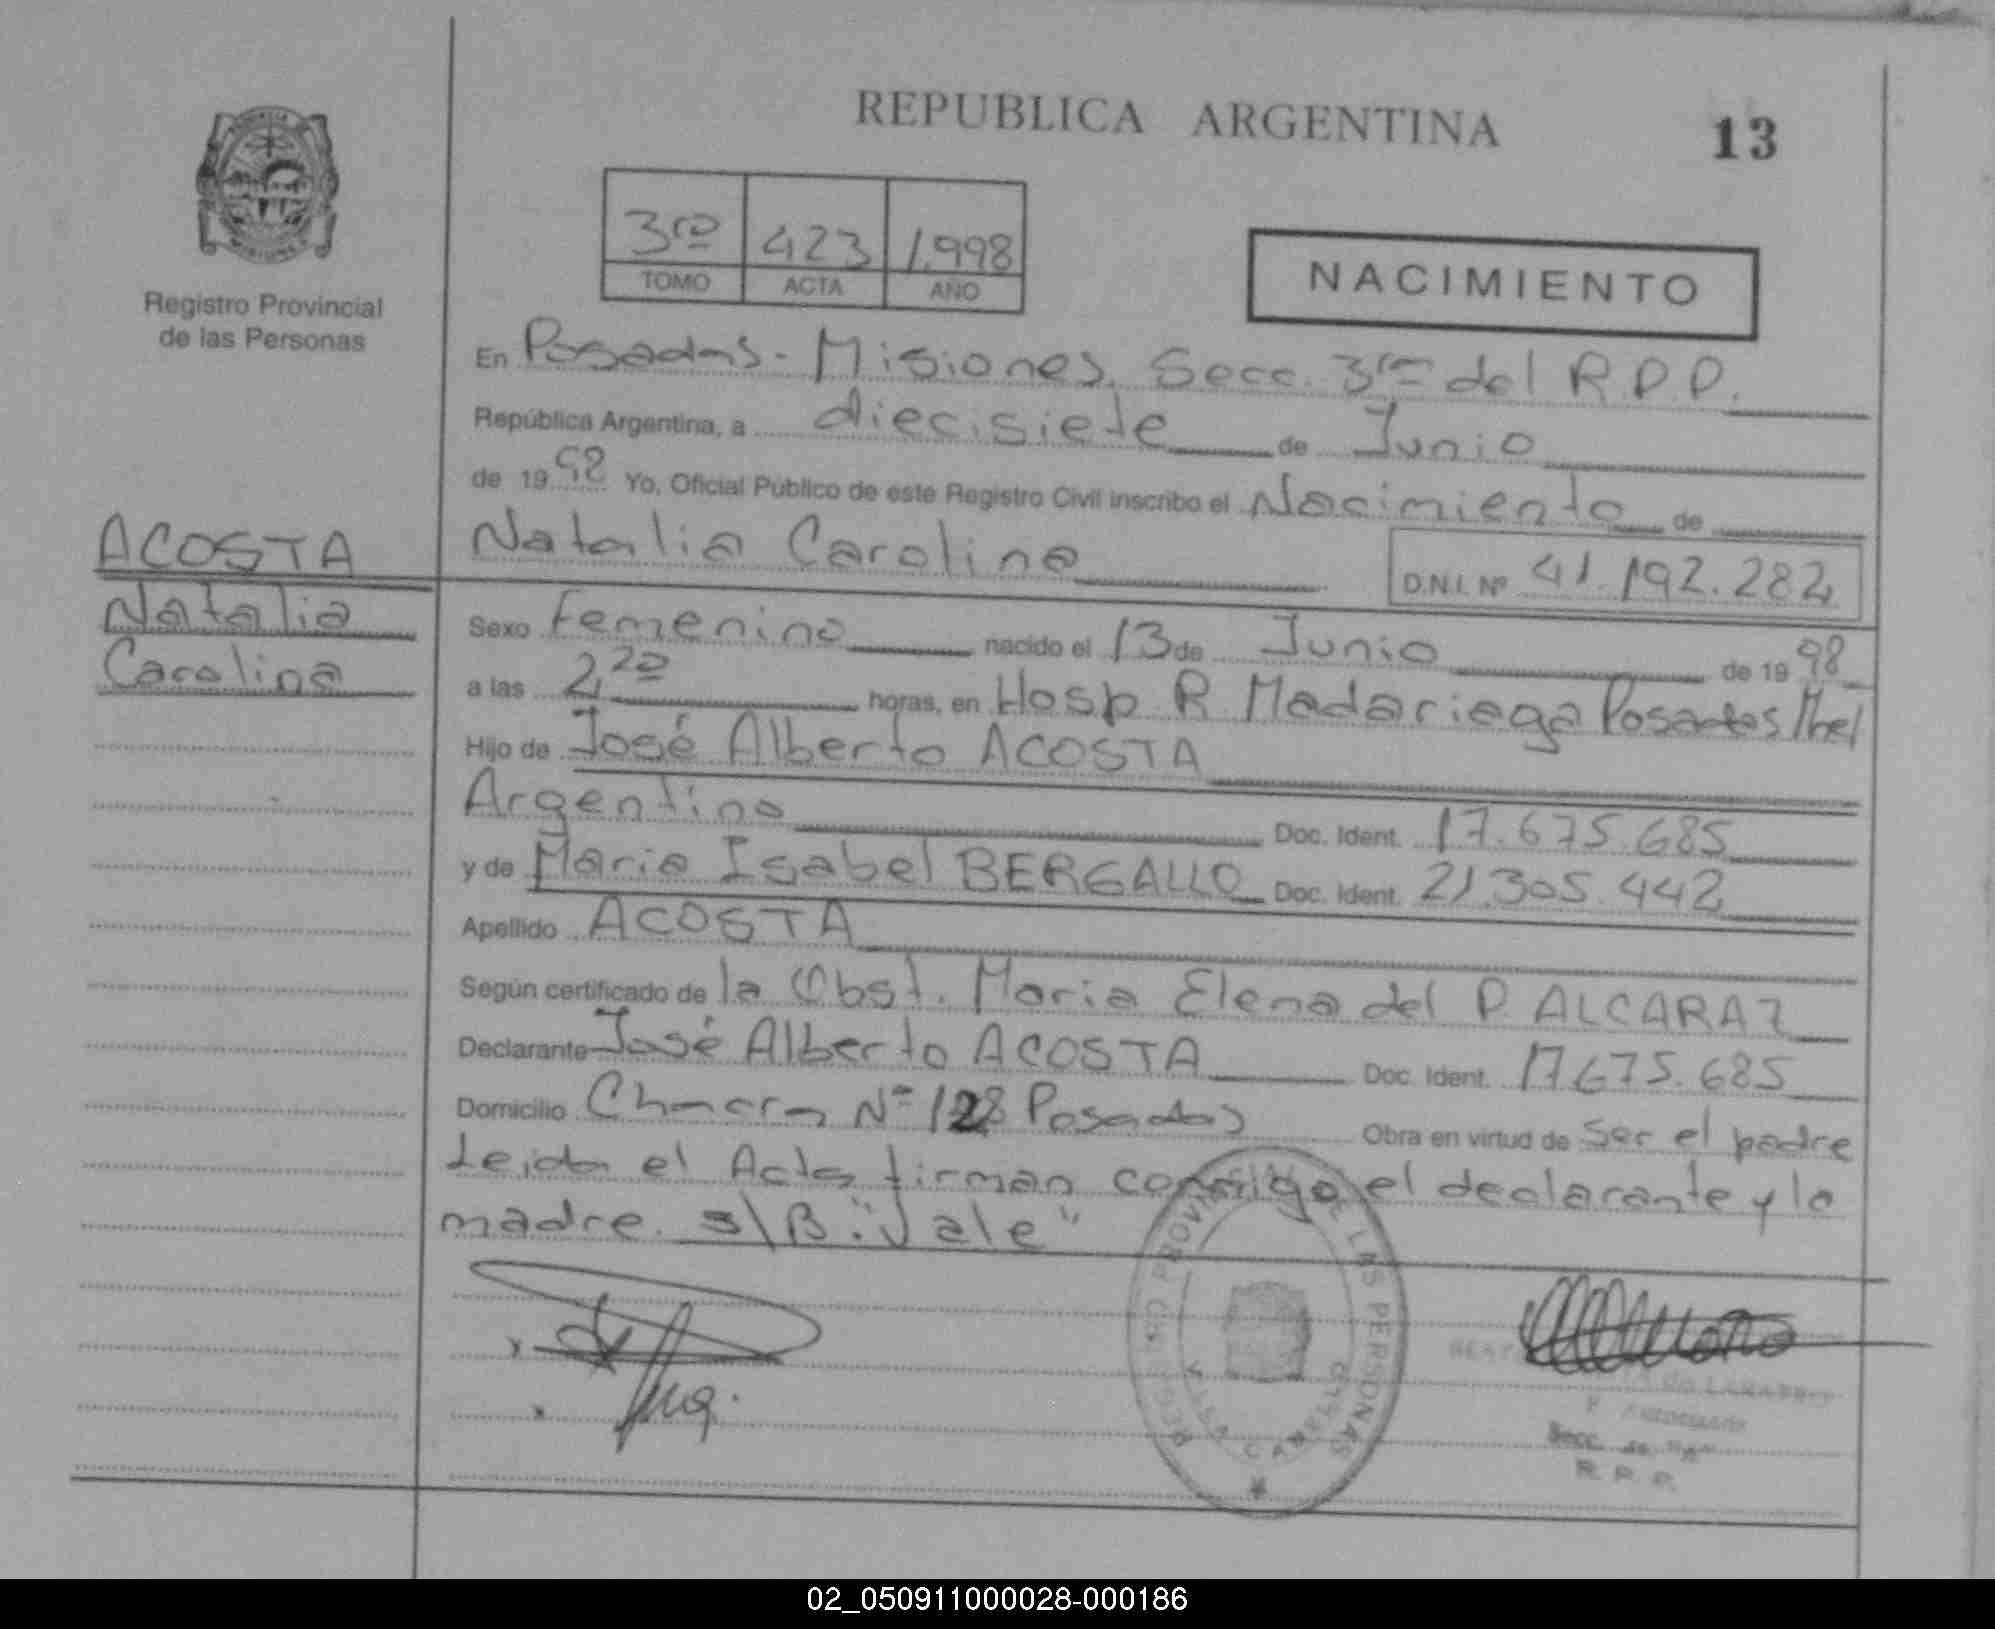 REPUBLICA ARGENTINA
13
Registro Provincial
de las Personas
3ro 423 1.998
TOMO ACTA AÑO
NACIMIENTO
En Posadas - Misiones, Secc. 3ra del R.P.P.
República Argentina, a diecisiete de Junio
de 1998 Yo, Oficial Público de este Registro Civil inscribo el Nacimiento de
Natalia Carolina
D.N.I. Nº 41.192.282
ACOSTA
Natalia
Carolina
Sexo Femenino nacido el 13 de Junio de 1998
a las 2,20 horas, en Hosp R Madariaga Posadas
Hijo de José Alberto ACOSTA
Argentino Doc. Ident. 17.675.685
y de Maria Isabel BERGALLO Doc. Ident. 21.305.442
Apellido ACOSTA
Según certificado de la Obst. Maria Elena del P. ALCARAZ
Declarante José Alberto ACOSTA Doc. Ident. 17675.685
Domicilio Chacra Nº 128 Posadas Obra en virtud de ser el padre
Leida el Acta firman conmigo el declarante y la
madre. s/B: "Vale"
REGISTRO PROVINCIAL DE LAS PERSONAS
VILLA CABELLO
Secc. "A"
R. P. P.
02_050911000028-000186